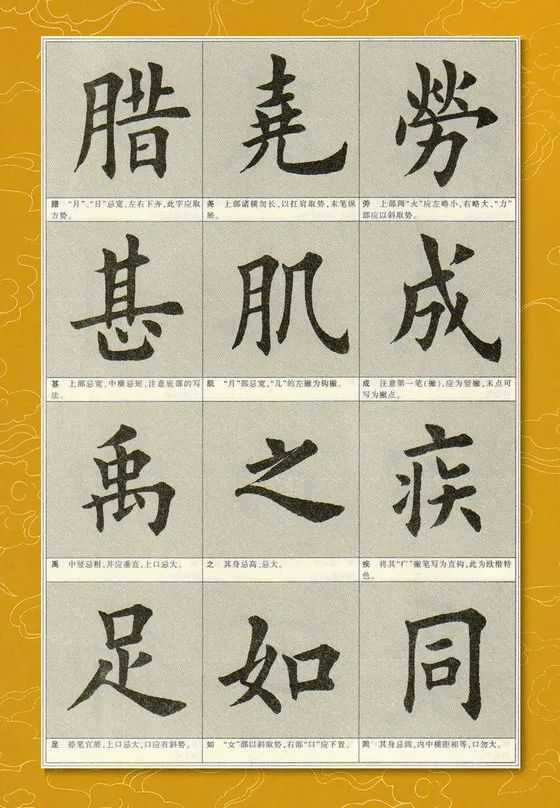 勞
劳 上部两“火”应左略小,右略大,“力”
部应以斜取势。
成
成 注意第一笔(撇),应为竖撇,末点可
写为撇点。
疾
疾 将其“疒”撇笔写为直钩,此为欧楷特
色。
同
同 其身忌阔,内中横距相等,口勿大。
堯
尧 上部诸横勿长,以扛肩取势,末笔纵
展。
肌
肌 “月”部忌宽,“几”的左撇为钩撇。
之
之 其身忌高、忌大。
如
如 “女”部以斜取势,右部“口”应下置。
腊
腊 “月”、“日”忌宽,左右下齐,此字应取
方势。
甚
甚 上部忌宽,中横忌短,注意底部的写
法。
禹
禹 中竖忌粗,并应垂直,上口忌大。
足
足 捺笔宜,上口忌大,口应有斜势。